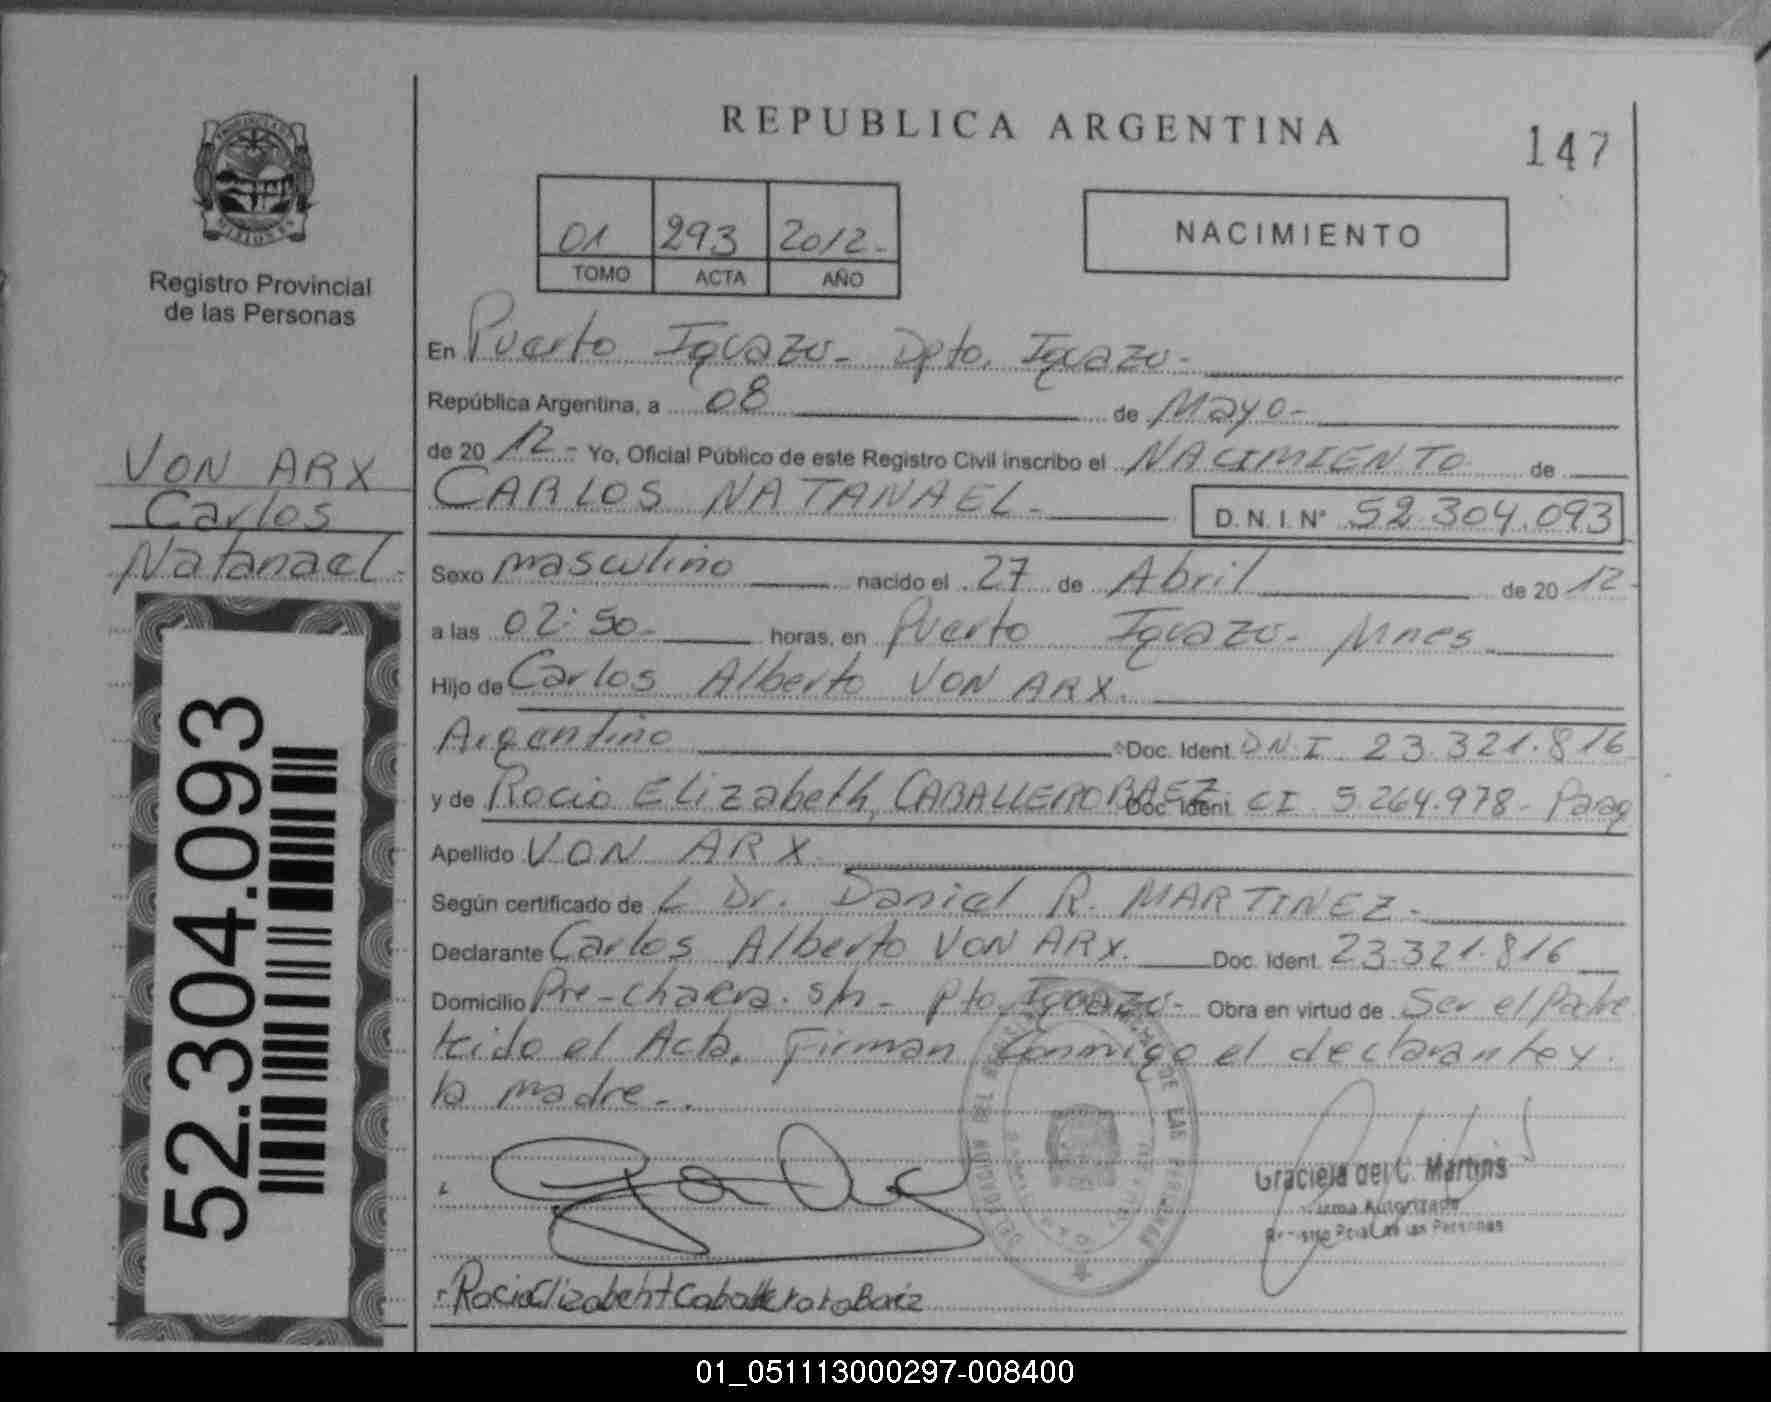 REPUBLICA ARGENTINA
147
01 293 2012-
TOMO ACTA AÑO
NACIMIENTO
Registro Provincial
de las Personas
VON ARX
Carlos
Natanael-
52.304.093
En Puerto Iguazu- Dpto. Iguazu-
República Argentina, a 08 de Mayo-
de 20 12- Yo, Oficial Público de este Registro Civil inscribo el NACIMIENTO de
CARLOS NATANAEL- D.N.I. N° 52.304.093
Sexo masculino nacido el 27 de Abril de 20 12-
a las 02:50- horas, en Puerto Iguazu- Mnes
Hijo de Carlos Alberto VON ARX.
Argentino Doc. Ident. D.N.I. 23.321.816
y de Rocio Elizabeth CABALLERO BAEZ Doc. Ident. CI. 5.264.978- Parag
Apellido VON ARX.
Según certificado de L Dr. Daniel R. MARTINEZ-
Declarante Carlos Alberto VON ARX. Doc. Ident. 23.321.816
Domicilio Pre-chacra. s/n- Pto. Iguazu- Obra en virtud de Ser el Padre
Leido el Acta, Firman Conmigo el declarante y
la madre-.
Graciela del C. Martins
Firma Autorizada
Registro Pcial. de las Personas
Rocio Elizabeht Caballero Baez
01_051113000297-008400